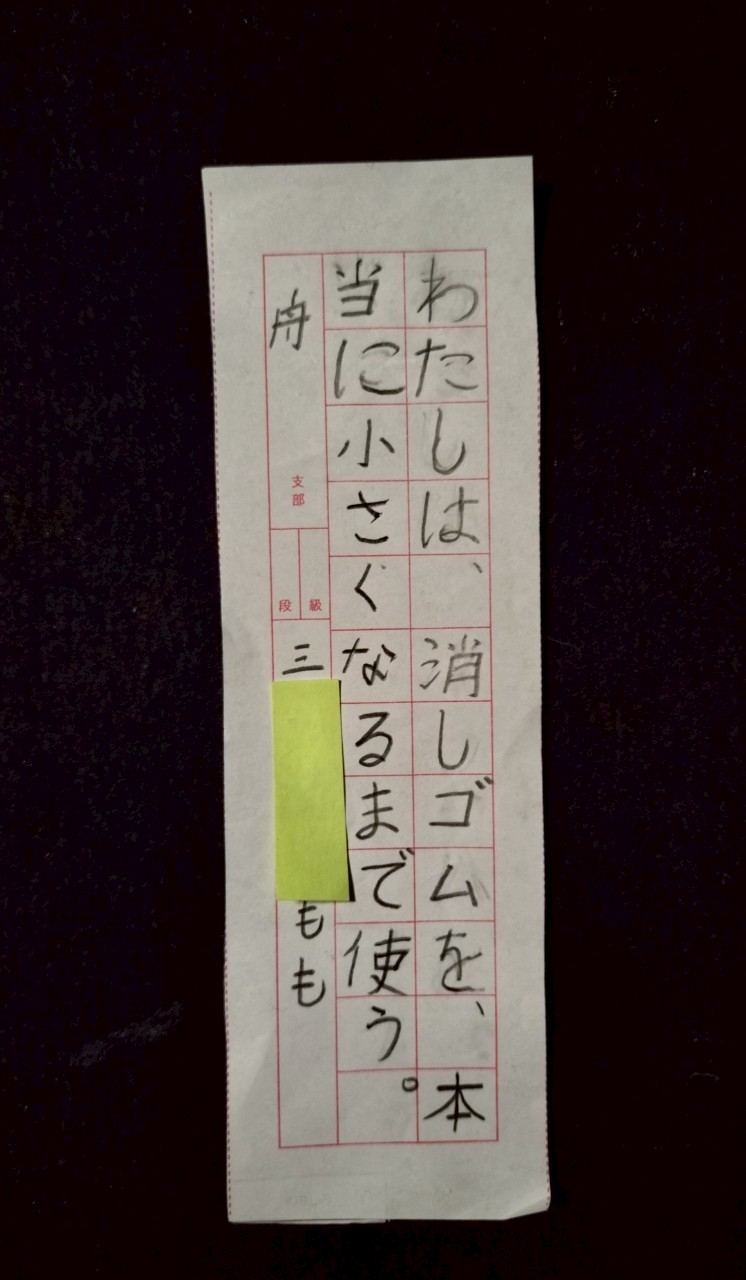 わたしは、消しゴムを、本
当に小さくなるまで使う。
舟
支部
段 級
三
もも